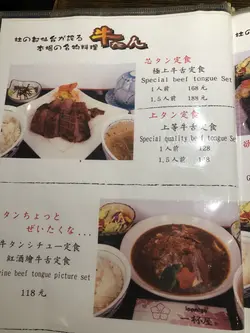 杜の都仙台が誇る
本場の名物料理
牛たん
芯タン定食
極上牛舌定食
Special beef tongue Set
1人前 168元
1.5人前 188元
上タン定食
上等牛舌定食
Special quality beef tongue Set
1人前
1.5人前
タンちょっと
ぜいたくな...
牛タンシチュー定食
紅酒燴牛舌定食
rise beef tongue picture set
118元